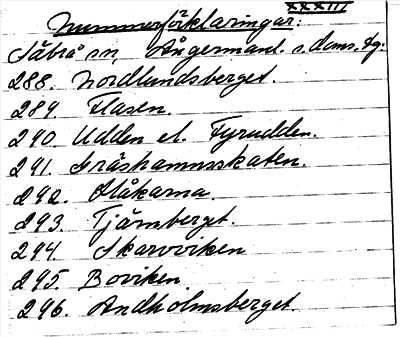 XXXIII
Nummerförklaringar:
Säbrå sn, Ångermanl. s. doms. tg.
288. Nordlundsberget.
289. Flasen.
290. Udden el. Fyrudden.
291. Gräshamnsskaten.
292. Flåkarna.
293. Tjärnberget.
294. Skarvviken
295. Boviken.
296. Andholmsberget.